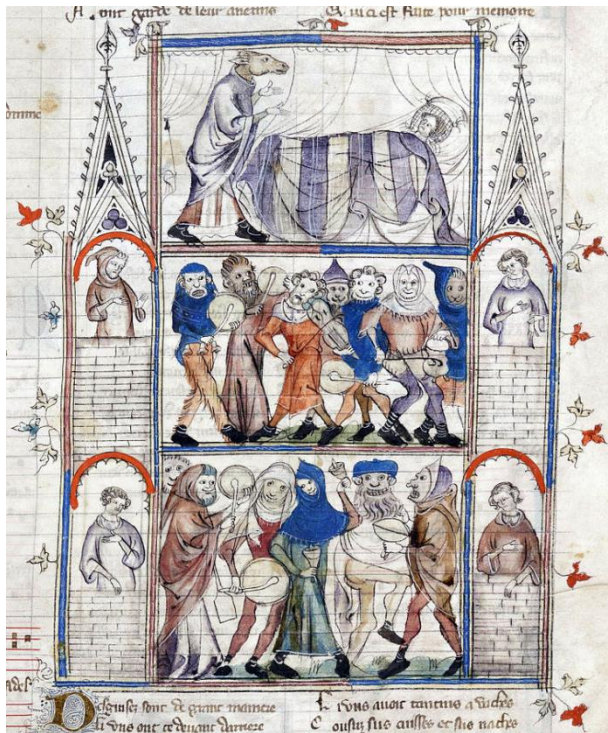 A ont garde de leur anemis
Q ui ci est faite pour memoire
Desguisez sont de grant maniere
Li vns ont ce deuant darriere
Li vns auoit tantins a vaches
Cousuz sus cuisses et sus naches